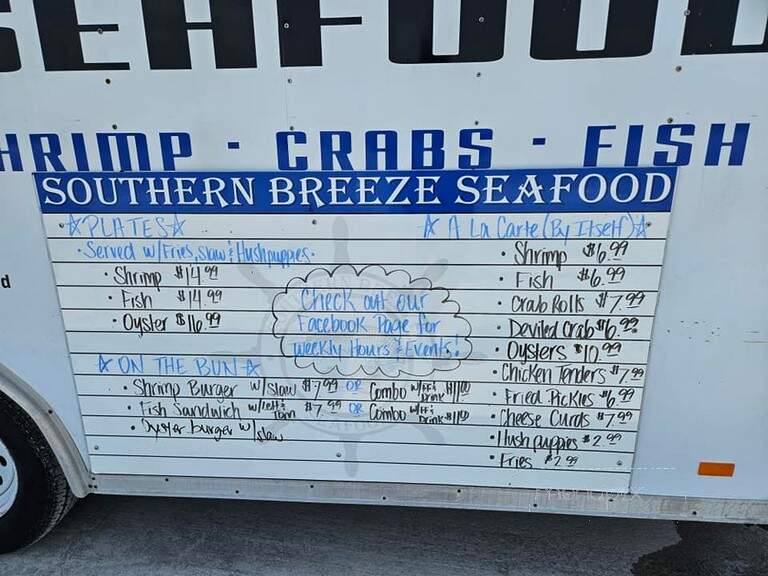 SEAFOOD
SHRIMP · CRABS · FISH
SOUTHERN BREEZE SEAFOOD
☆PLATES☆
· Served w/Fries, Slaw & Hushpuppies ·
· Shrimp $14.99
· Fish $14.99
· Oyster $16.99
Check out our
Facebook Page for
Weekly Hours & Events!
☆ ON THE BUN ☆
· Shrimp Burger w/slaw $7.99 OR Combo w/FF & Drink $11.00
· Fish Sandwich w/Lett & Tom $7.99 OR Combo w/FF & Drink $11.00
· Oyster burger w/slaw
☆ A La Carte (By Itself) ☆
· Shrimp $6.99
· Fish $6.99
· Crab Rolls $7.99
· Deviled Crab $6.99
· Oysters $10.99
· Chicken Tenders $7.99
· Fried Pickles $6.99
· Cheese Curds $7.99
· Hush puppies $2.99
· Fries $2.99
d